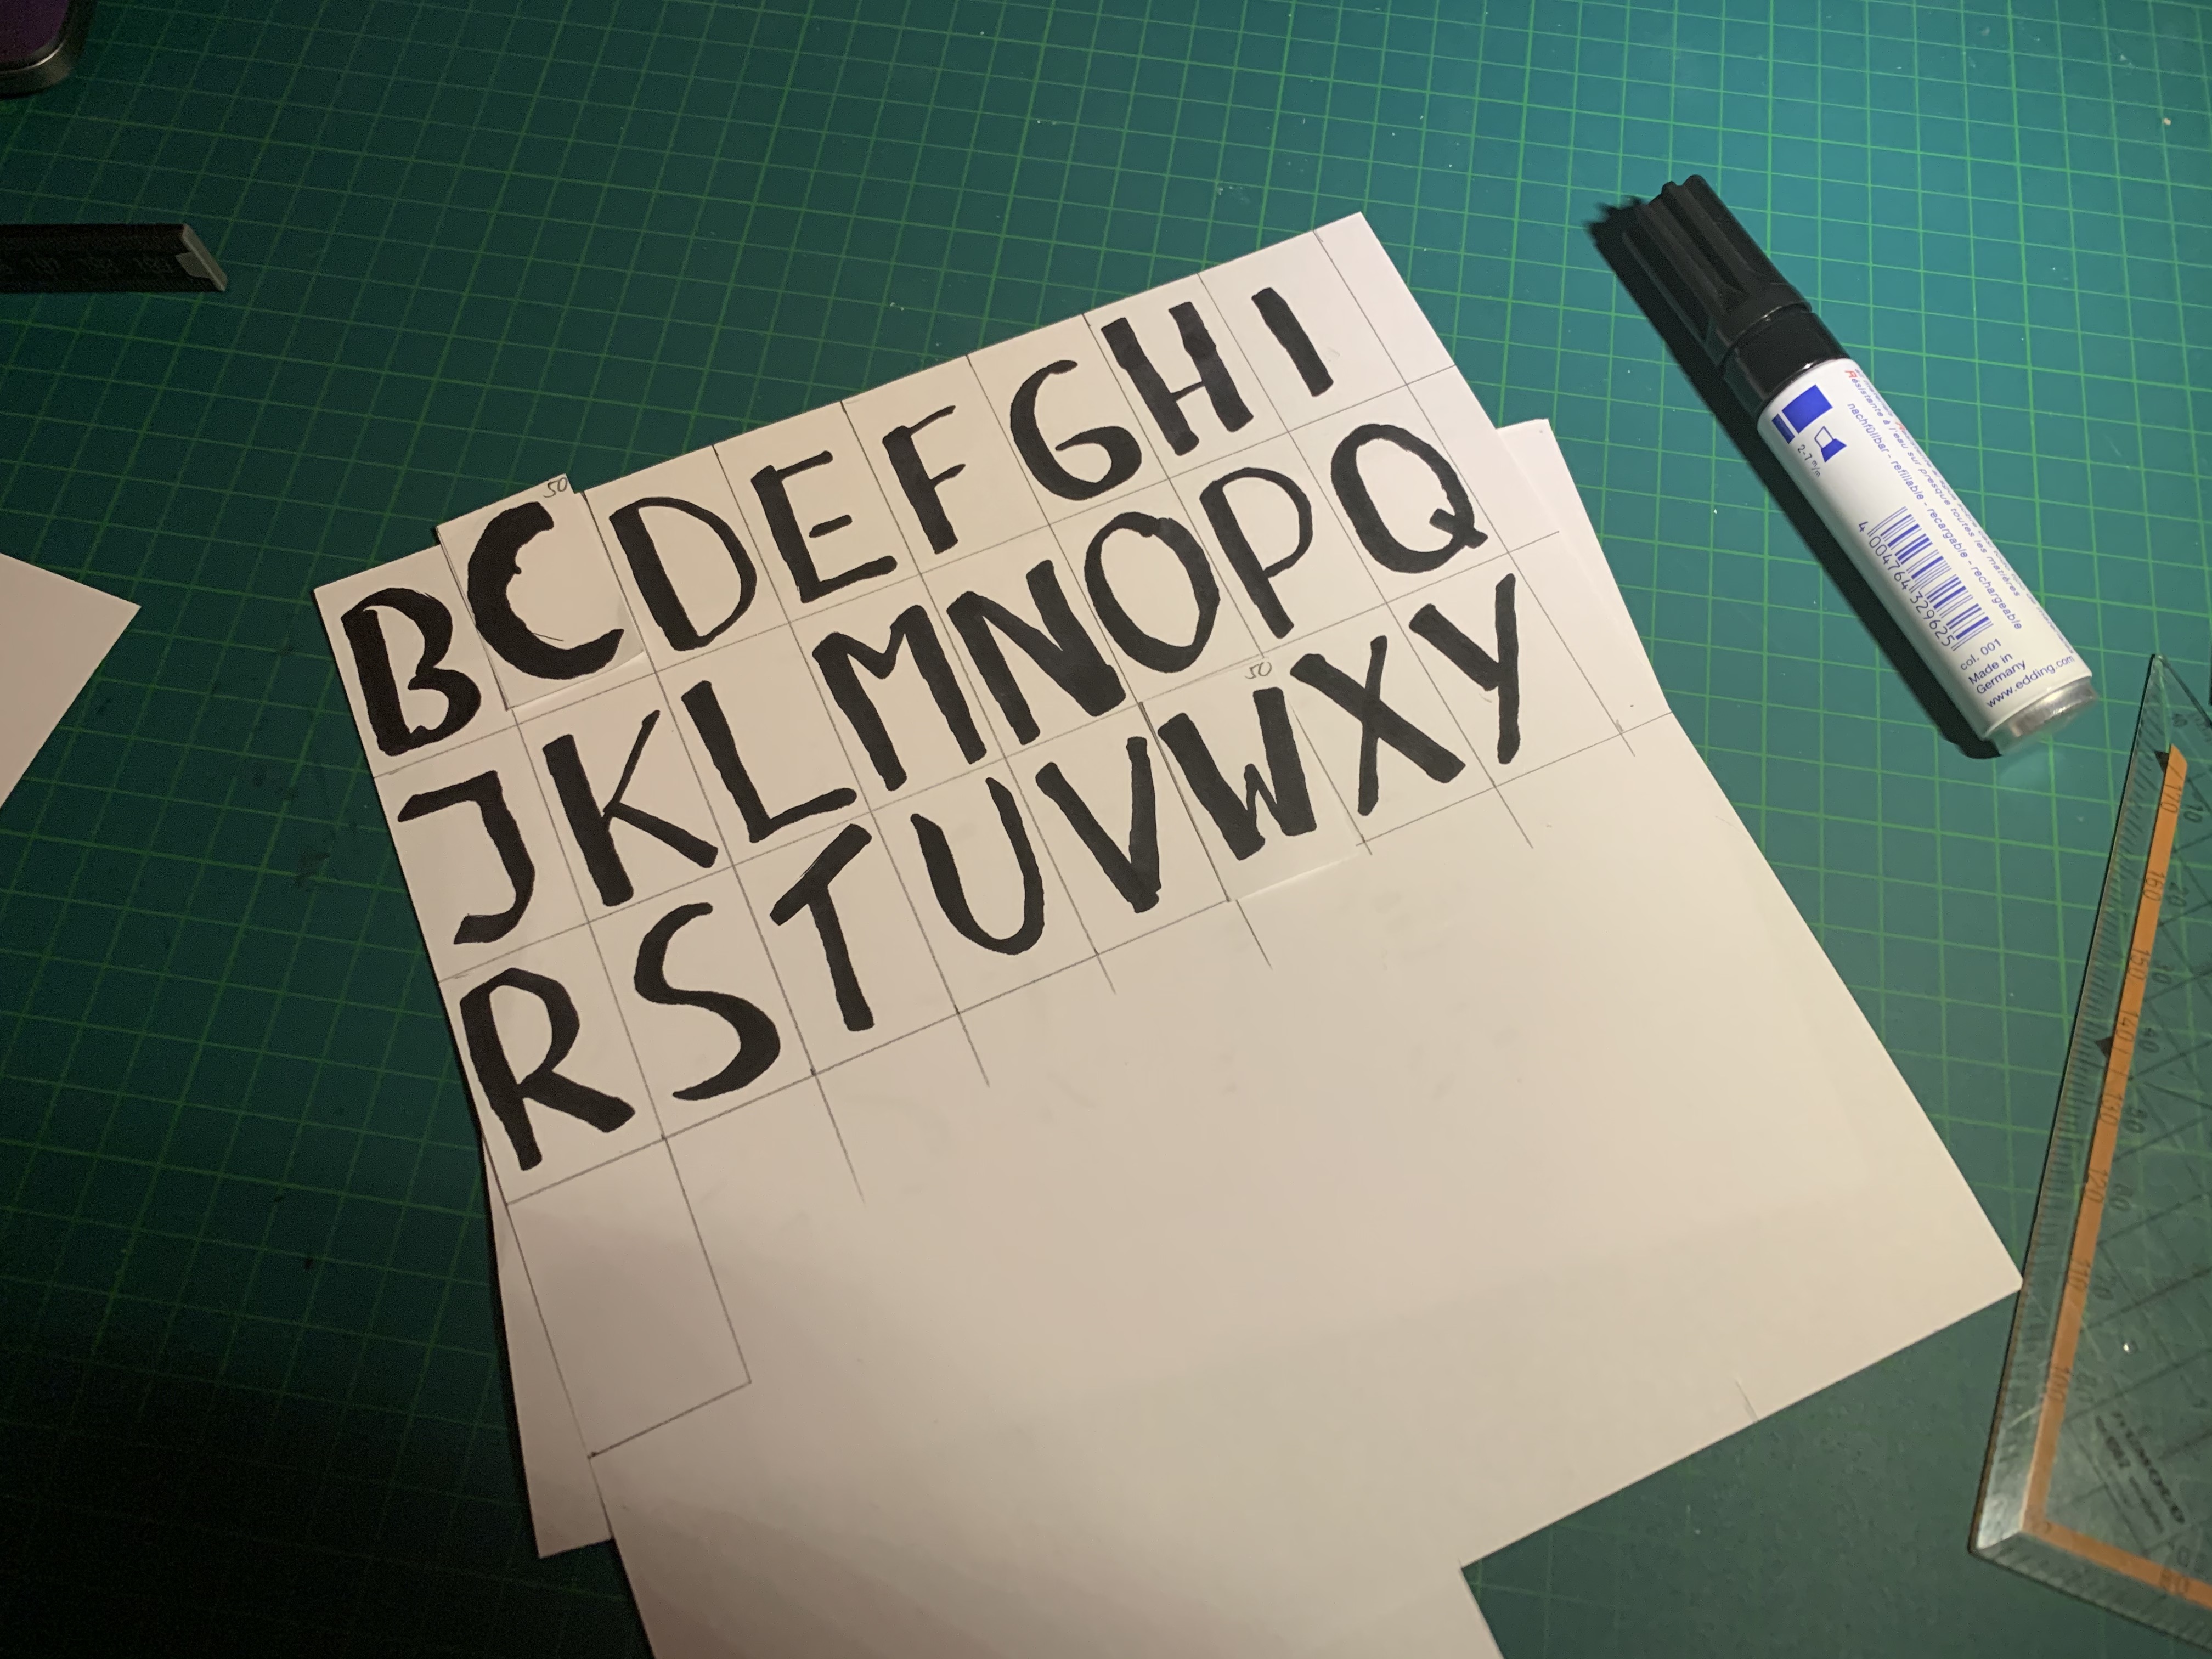 50
B C D E F G H I
J K L M N O P Q
50
R S T U V W X Y
Résistante à l'eau sur presque toutes les matières
nachfüllbar - refillable - recargable - rechargeable
2-7 m/m
4 004764 329625
col. 001
Made in
Germany
www.edding.com
170
160
150
140
130
120
110
100